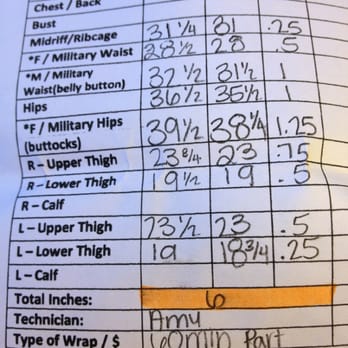 Chest / Back
Bust
Midriff/Ribcage 31 1/4 31 .25
*F / Military Waist 28 1/2 28 .5
*M / Military 32 1/2 31 1/2 1
Waist(belly button)
Hips 36 1/2 35 1/2 1
*F / Military Hips 39 1/2 38 1/4 1.25
(buttocks)
R – Upper Thigh 23 3/4 23 .75
R – Lower Thigh 19 1/2 19 .5
R – Calf
L – Upper Thigh 23 1/2 23 .5
L – Lower Thigh 19 18 3/4 .25
L – Calf
Total Inches: 6
Technician: Amy
Type of Wrap / $ 60min Part